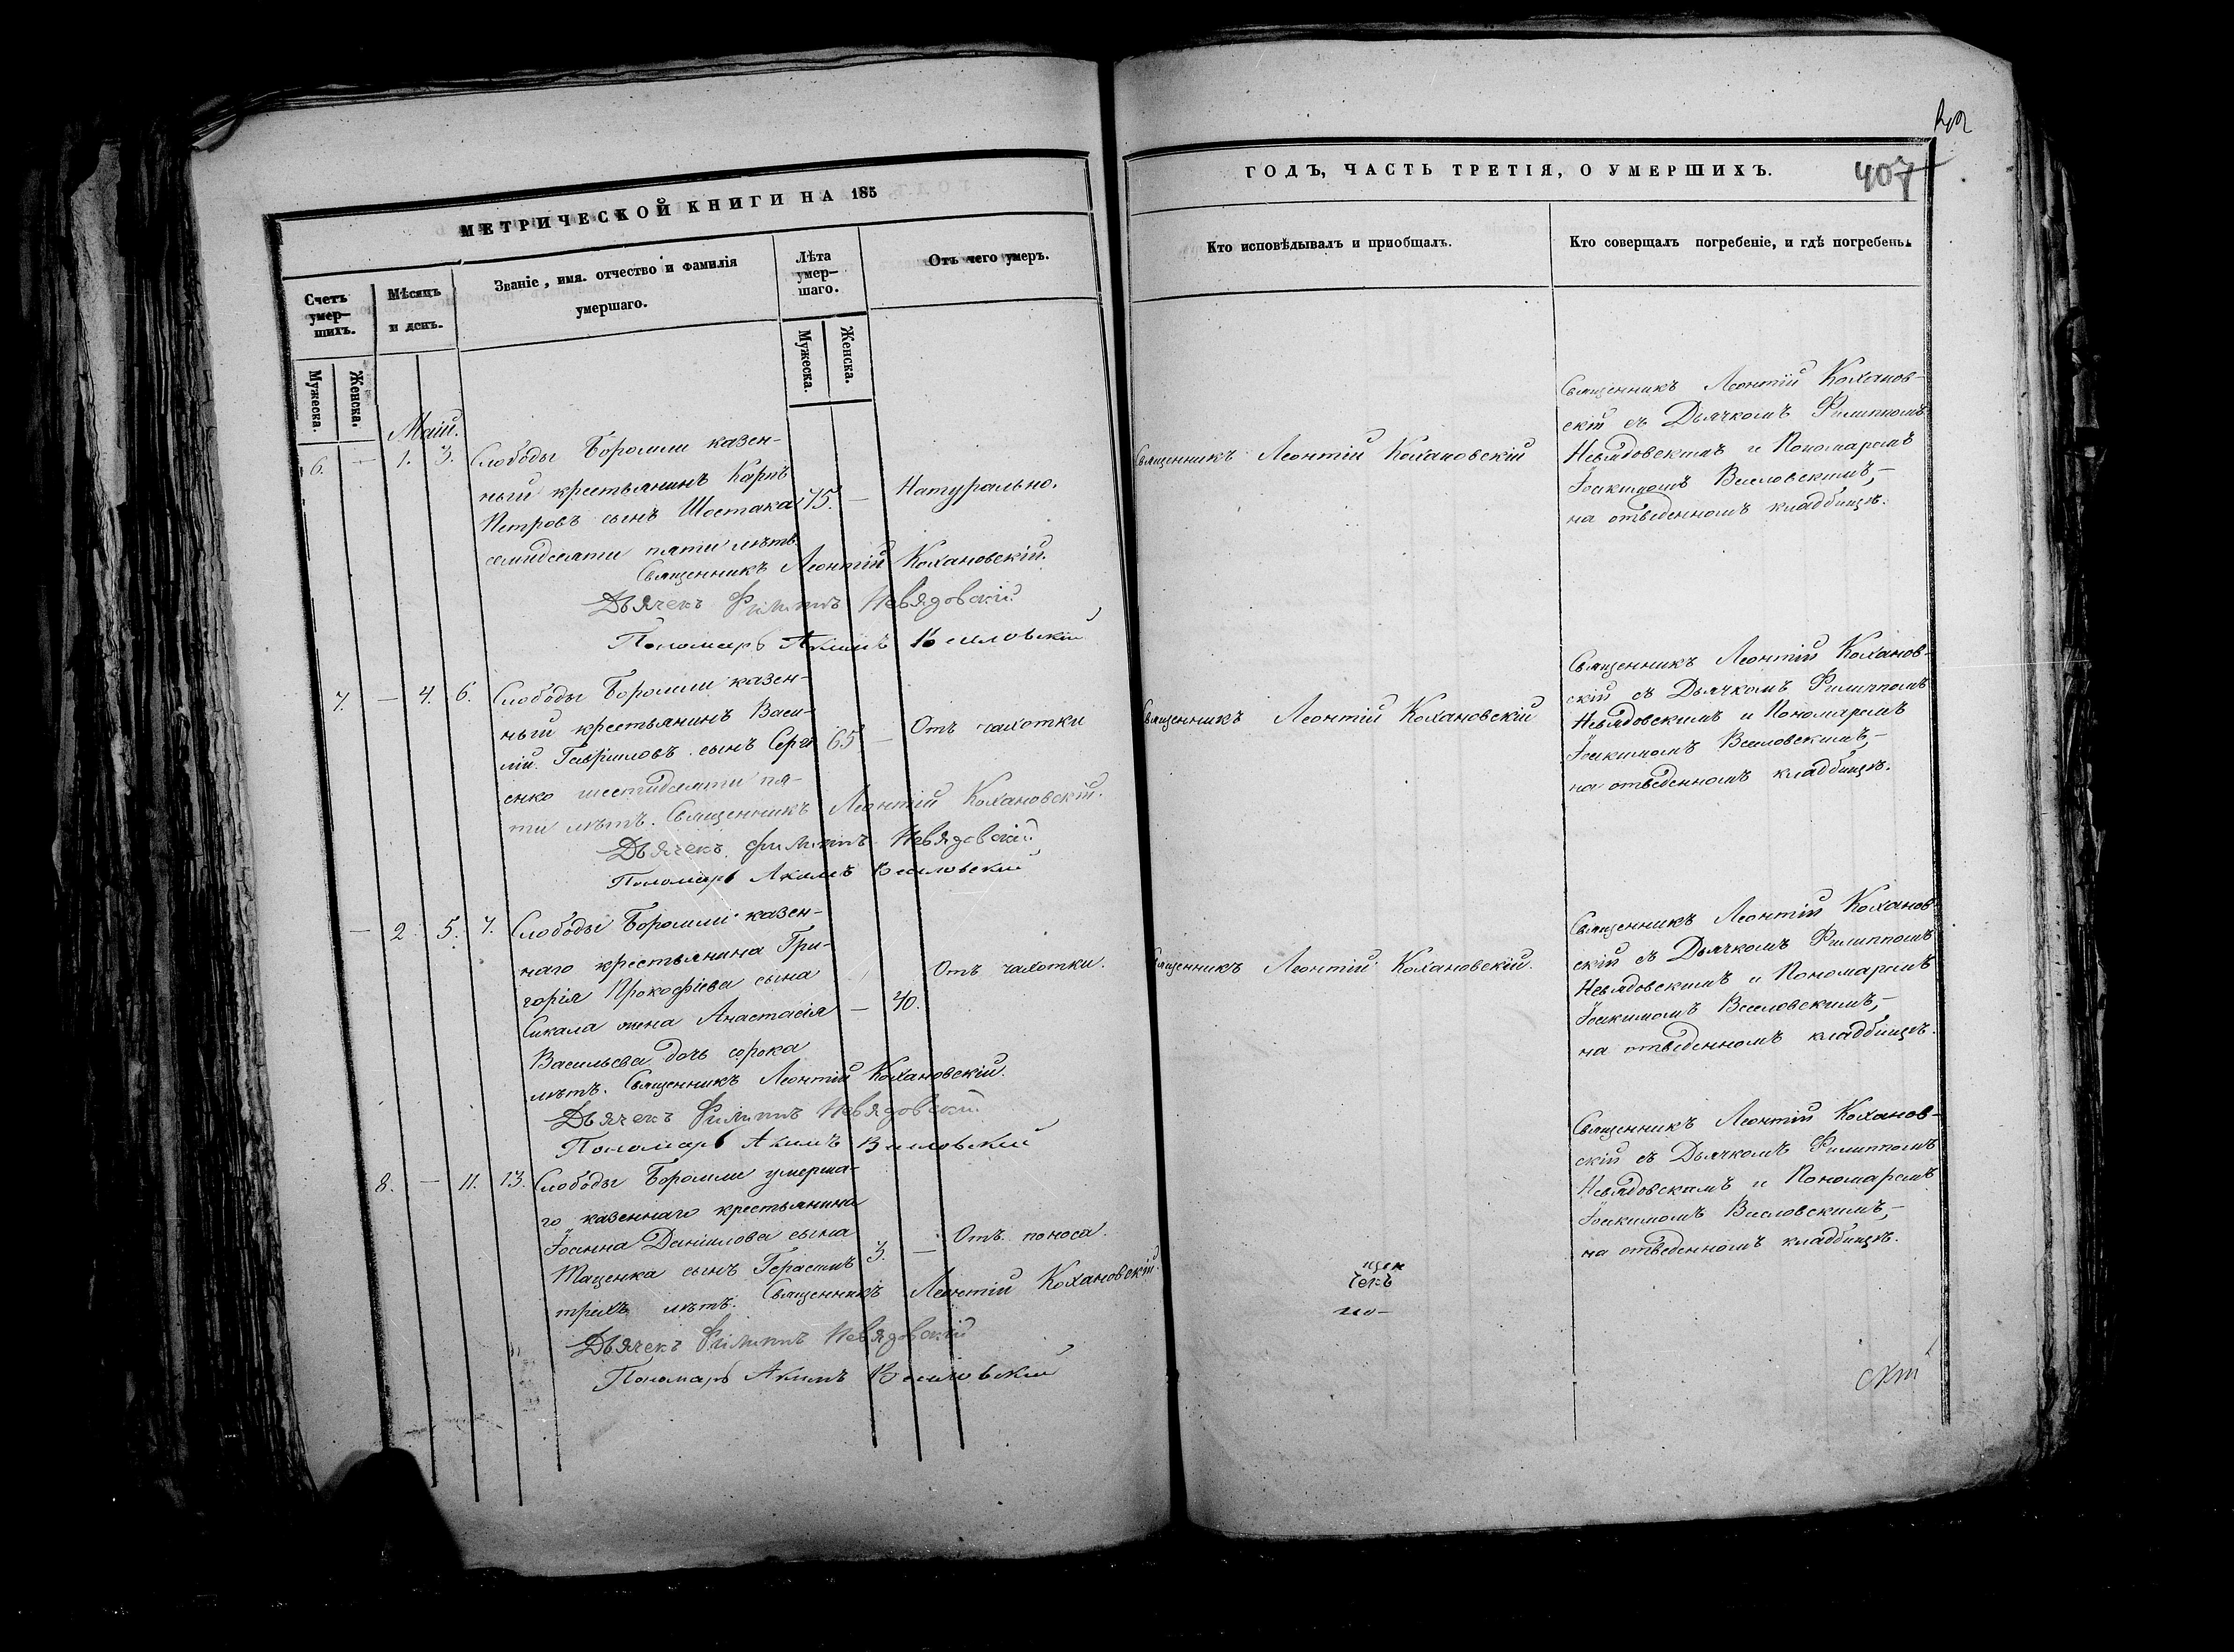 МЕТРИЧЕСКОЙ КНИГИ НА 185
Счетъ умер-
шихъ.
Мѣсяцъ
и день.
Званіе, имя. отчество и фамилія
умершаго.
Лѣта
умер-
шаго.
Отъ чего умеръ.
Мужеска.
Женска.
Мужеска.
Женска.
Маій.
6. — 1. 3. Слободы Боромли казен-
ный крестьянинъ Карпъ
Петровъ сынъ Шостака 75. — Натурально.
семидесяти пяти лѣтъ.
Священникъ Леонтій Кохановскій.
Дьячекъ Филиппъ Невядовскій
Пономарь Акимъ Веселовскій
7. — 4. 6. Слободы Боромли казен-
ный крестьянинъ Васи-
лій Гавриловъ сынъ Серги 65 — Отъ чахотки
енко шестидесяти пя-
ти лѣтъ. Священникъ Леонтій Кохановскій.
Дьячекъ Филиппъ Невядовскій
Пономарь Акимъ Веселовскій
— 2. 5. 7. Слободы Боромли казен-
наго крестьянина Гри-
горія Прокофіева сына
Сикала жена Анастасія — 40. Отъ чахотки.
Васильева дочь сорока
лѣтъ. Священникъ Леонтій Кохановскій.
Дьячекъ Филиппъ Невядовскій
Пономарь Акимъ Веселовскій
8. — 11. 13. Слободы Боромли умерша-
го казеннаго крестьянина
Іоанна Даніилова сына
Таценка сынъ Герасимъ 3. — Отъ поноса.
трехъ лѣтъ. Священникъ Леонтій Кохановскій.
Дьячекъ Филиппъ Невядовскій
Пономарь Акимъ Веселовскій
407
ГОДЪ, ЧАСТЬ ТРЕТІЯ, О УМЕРШИХЪ.
Кто исповѣдывалъ и приобщалъ.
Кто совершалъ погребеніе, и гдѣ погребены.
Священникъ Леонтій Кохановскій
Священникъ Леонтій Коханов-
скій съ Дьячкомъ Филиппомъ
Невядовскимъ и Пономаремъ
Іоакимомъ Веселовскимъ,—
на отведенномъ кладбищѣ.
Священникъ Леонтій Кохановскій
Священникъ Леонтій Коханов-
скій съ Дьячкомъ Филиппомъ
Невядовскимъ и Пономаремъ
Іоакимомъ Веселовскимъ,—
на отведенномъ кладбищѣ.
Священникъ Леонтій Кохановскій.
Священникъ Леонтій Коханов-
скій съ Дьячкомъ Филиппомъ
Невядовскимъ и Пономаремъ
Іоакимомъ Веселовскимъ,—
на отведенномъ кладбищѣ.
Священникъ Леонтій Коханов-
скій съ Дьячкомъ Филиппомъ
Невядовскимъ и Пономаремъ
Іоакимомъ Веселовскимъ,—
на отведенномъ кладбищѣ.
щен
чекъ
но-
скій